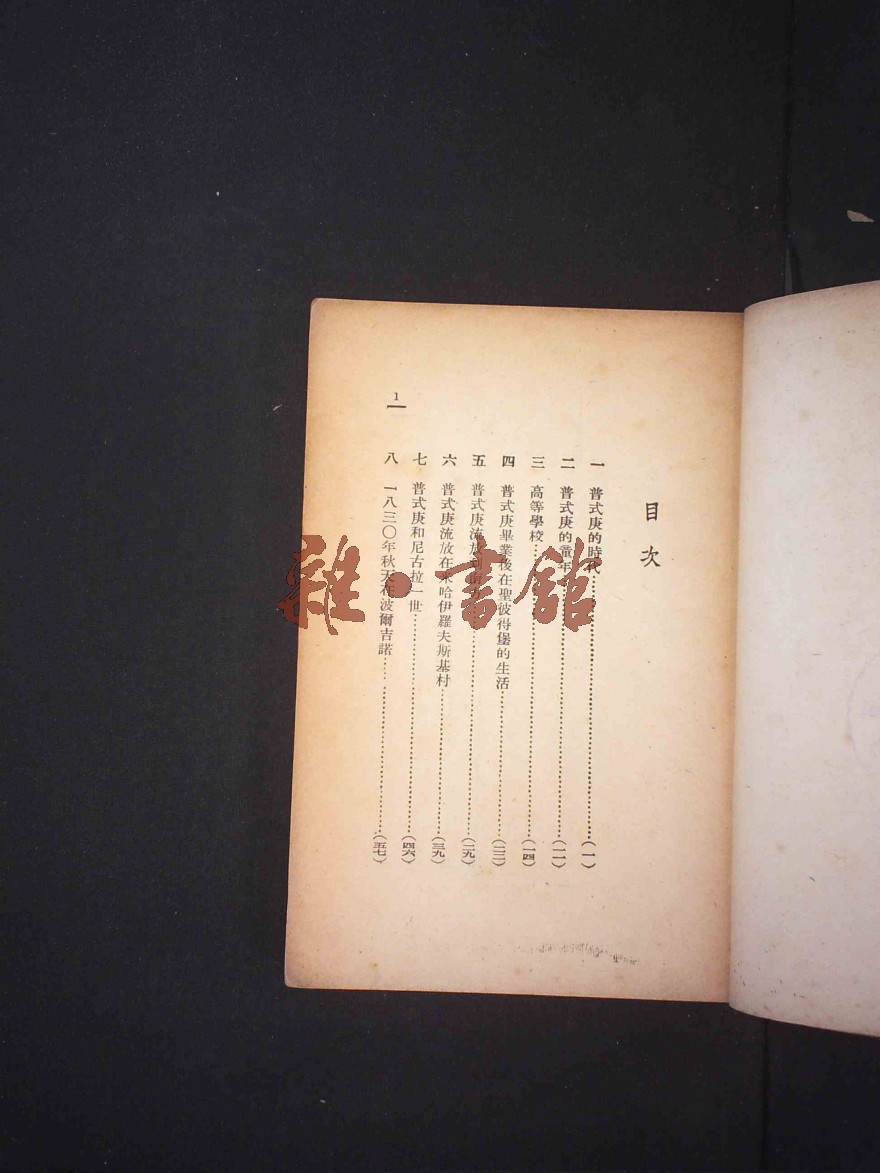 目次
一 普式庚的時代……(一)
二 普式庚的童年……(一一)
三 高等學校……(一四)
四 普式庚畢業後在聖彼得堡的生活……(二二)
五 普式庚流放到……(二九)
六 普式庚流放在米哈伊羅夫斯基村……(三九)
七 普式庚和尼古拉一世……(四六)
八 一八三〇年秋天在波爾吉諾……(五七)
1
雜·書館